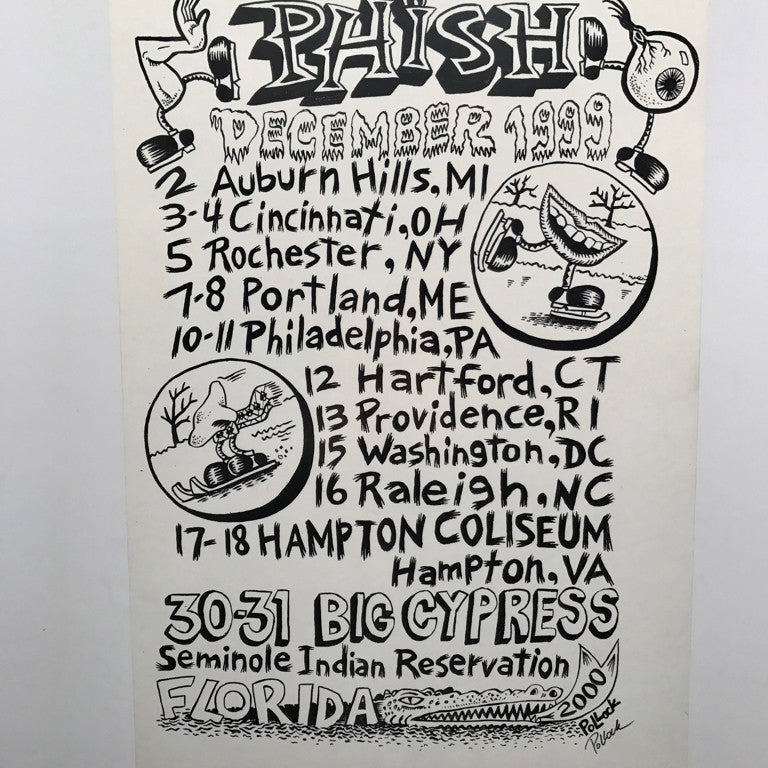 PHISH
DECEMBER 1999
2 Auburn Hills, MI
3-4 Cincinnati, OH
5 Rochester, NY
7-8 Portland, ME
10-11 Philadelphia, PA
12 Hartford, CT
13 Providence, RI
15 Washington, DC
16 Raleigh, NC
17-18 HAMPTON COLISEUM
Hampton, VA
30-31 BIG CYPRESS
Seminole Indian Reservation
FLORIDA
2000
Pollock
Pollock